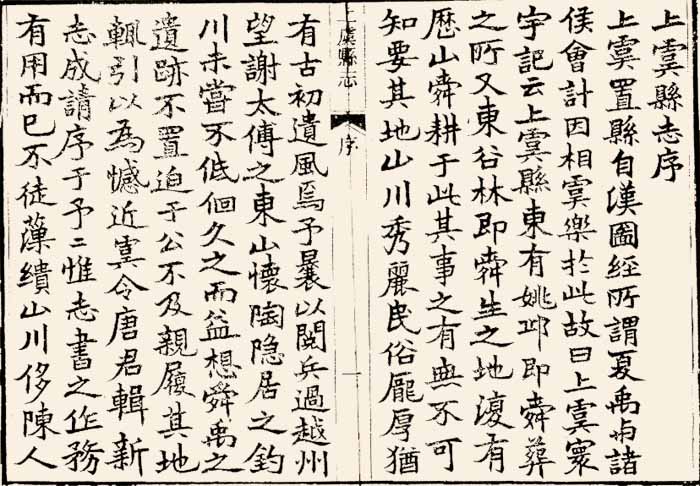 上虞縣志序
上虞置縣自漢圖經所謂夏禹与諸
侯會計因相虞樂於此故曰上虞寰
宇記云上虞縣東有姚邱即舜葬
之所又東谷林即舜生之地復有
歷山舜耕于此其事之有無不可
知要其地山川秀麗民俗龐厚猶
上虞縣志
序
有古初遺風焉予曩以閱兵過越州
望謝太傅之東山懷陶隐居之釣
川未嘗不低徊久之而益想舜禹之
遺跡不置迫于公不及親履其地
輒引以為憾近虞令唐君輯新
志成請序于予〻惟志書之作務
有用而已不徒藻繢山川侈陳人